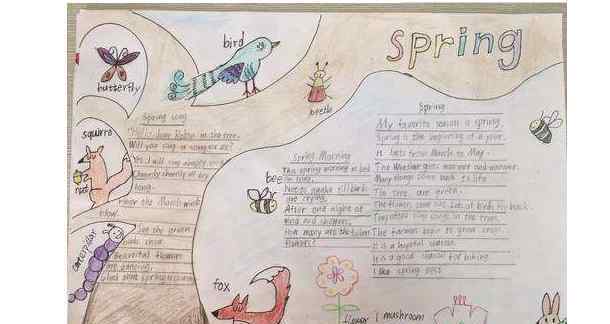 Spring
bird
butterfly
beetle
Spring song
"Hello, dear Robin in the tree.
Will you sing a song for
Yes, I will sing
Cheerily, cheerily
Hear the March winds
blow.
squirre
nut
caterpillar
Beautiful flowers
Spring Morning
This spring morning in bed
I'm lying,
Not to awake till birds
are crying.
After one night of
wind and showers,
How many are the fallen
flowers!
bee
Spring
My favorite season is spring.
Spring is the beginning of a year.
It lasts from March to May.
The Weather gets warmer and warmer.
Many things come back to life.
The trees are green.
The flowers come out. Lots of birds fly back.
They often sing songs in the trees.
The farmers begin to grow crops.
It is a hopeful season.
It is a good season for hiking.
I like spring best.
fox
flower
mushroom